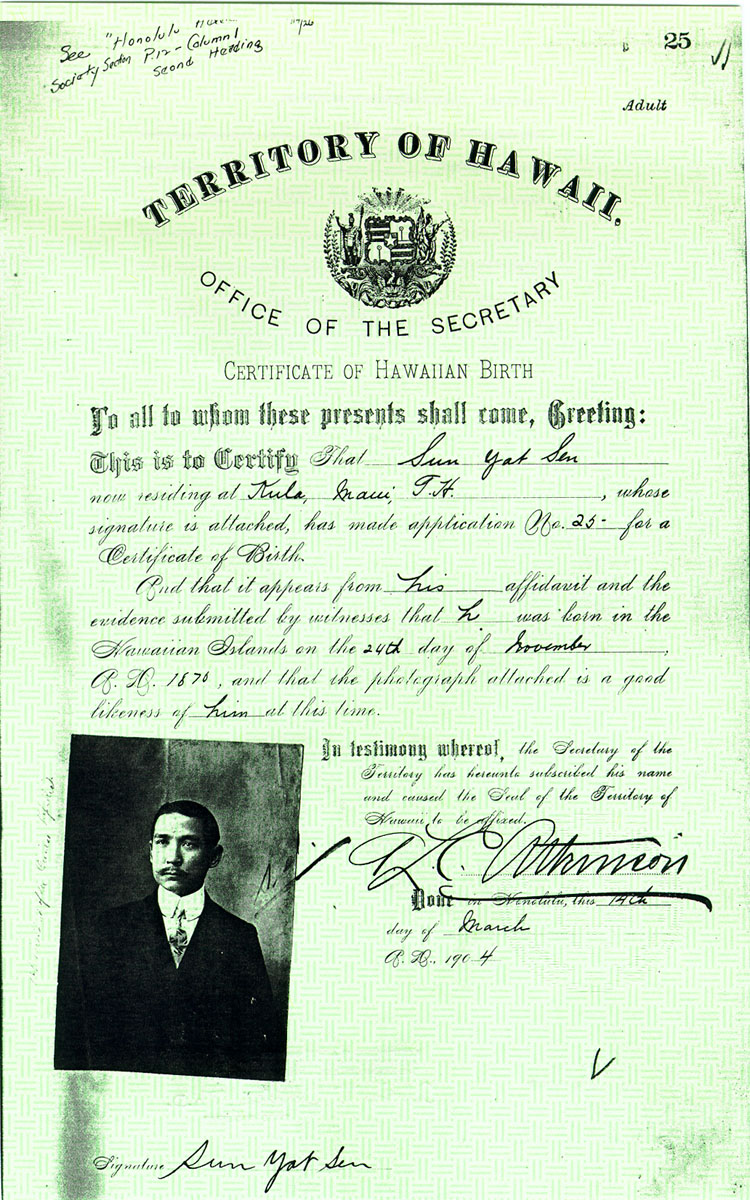 See "Honolulu
Society Section P.12 - Column 1
Second Heading
25
Adult
TERRITORY OF HAWAII.
OFFICE OF THE SECRETARY
CERTIFICATE OF HAWAIIAN BIRTH
To all to whom these presents shall come, Greeting:
This is to Certify That Sun Yat Sen
now residing at Kula, Maui, T.H. , whose
signature is attached, has made application No. 25- for a
Certificate of Birth.
And that it appears from his affidavit and the
evidence submitted by witnesses that h was born in the
Hawaiian Islands on the 24th day of November,
A.D. 1870, and that the photograph attached is a good
likeness of him at this time.
In testimony whereof, the Secretary of the
Territory has hereunto subscribed his name
and caused the Seal of the Territory of
Hawaii to be affixed.
A L C Atkinson
Done in Honolulu, this 14th
day of March
A.D., 1904
Signature Sun Yat Sen